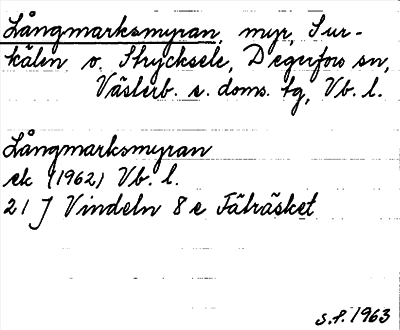 Långmarksmyran, myr, Sur-
kälen o. Strycksele, Degerfors sn,
Västerb. s. doms. tg, Vb. l.
Långmarksmyran
ek (1962) Vb. l.
21 J Vindeln 8 e Fäträsket
S.P. 1963